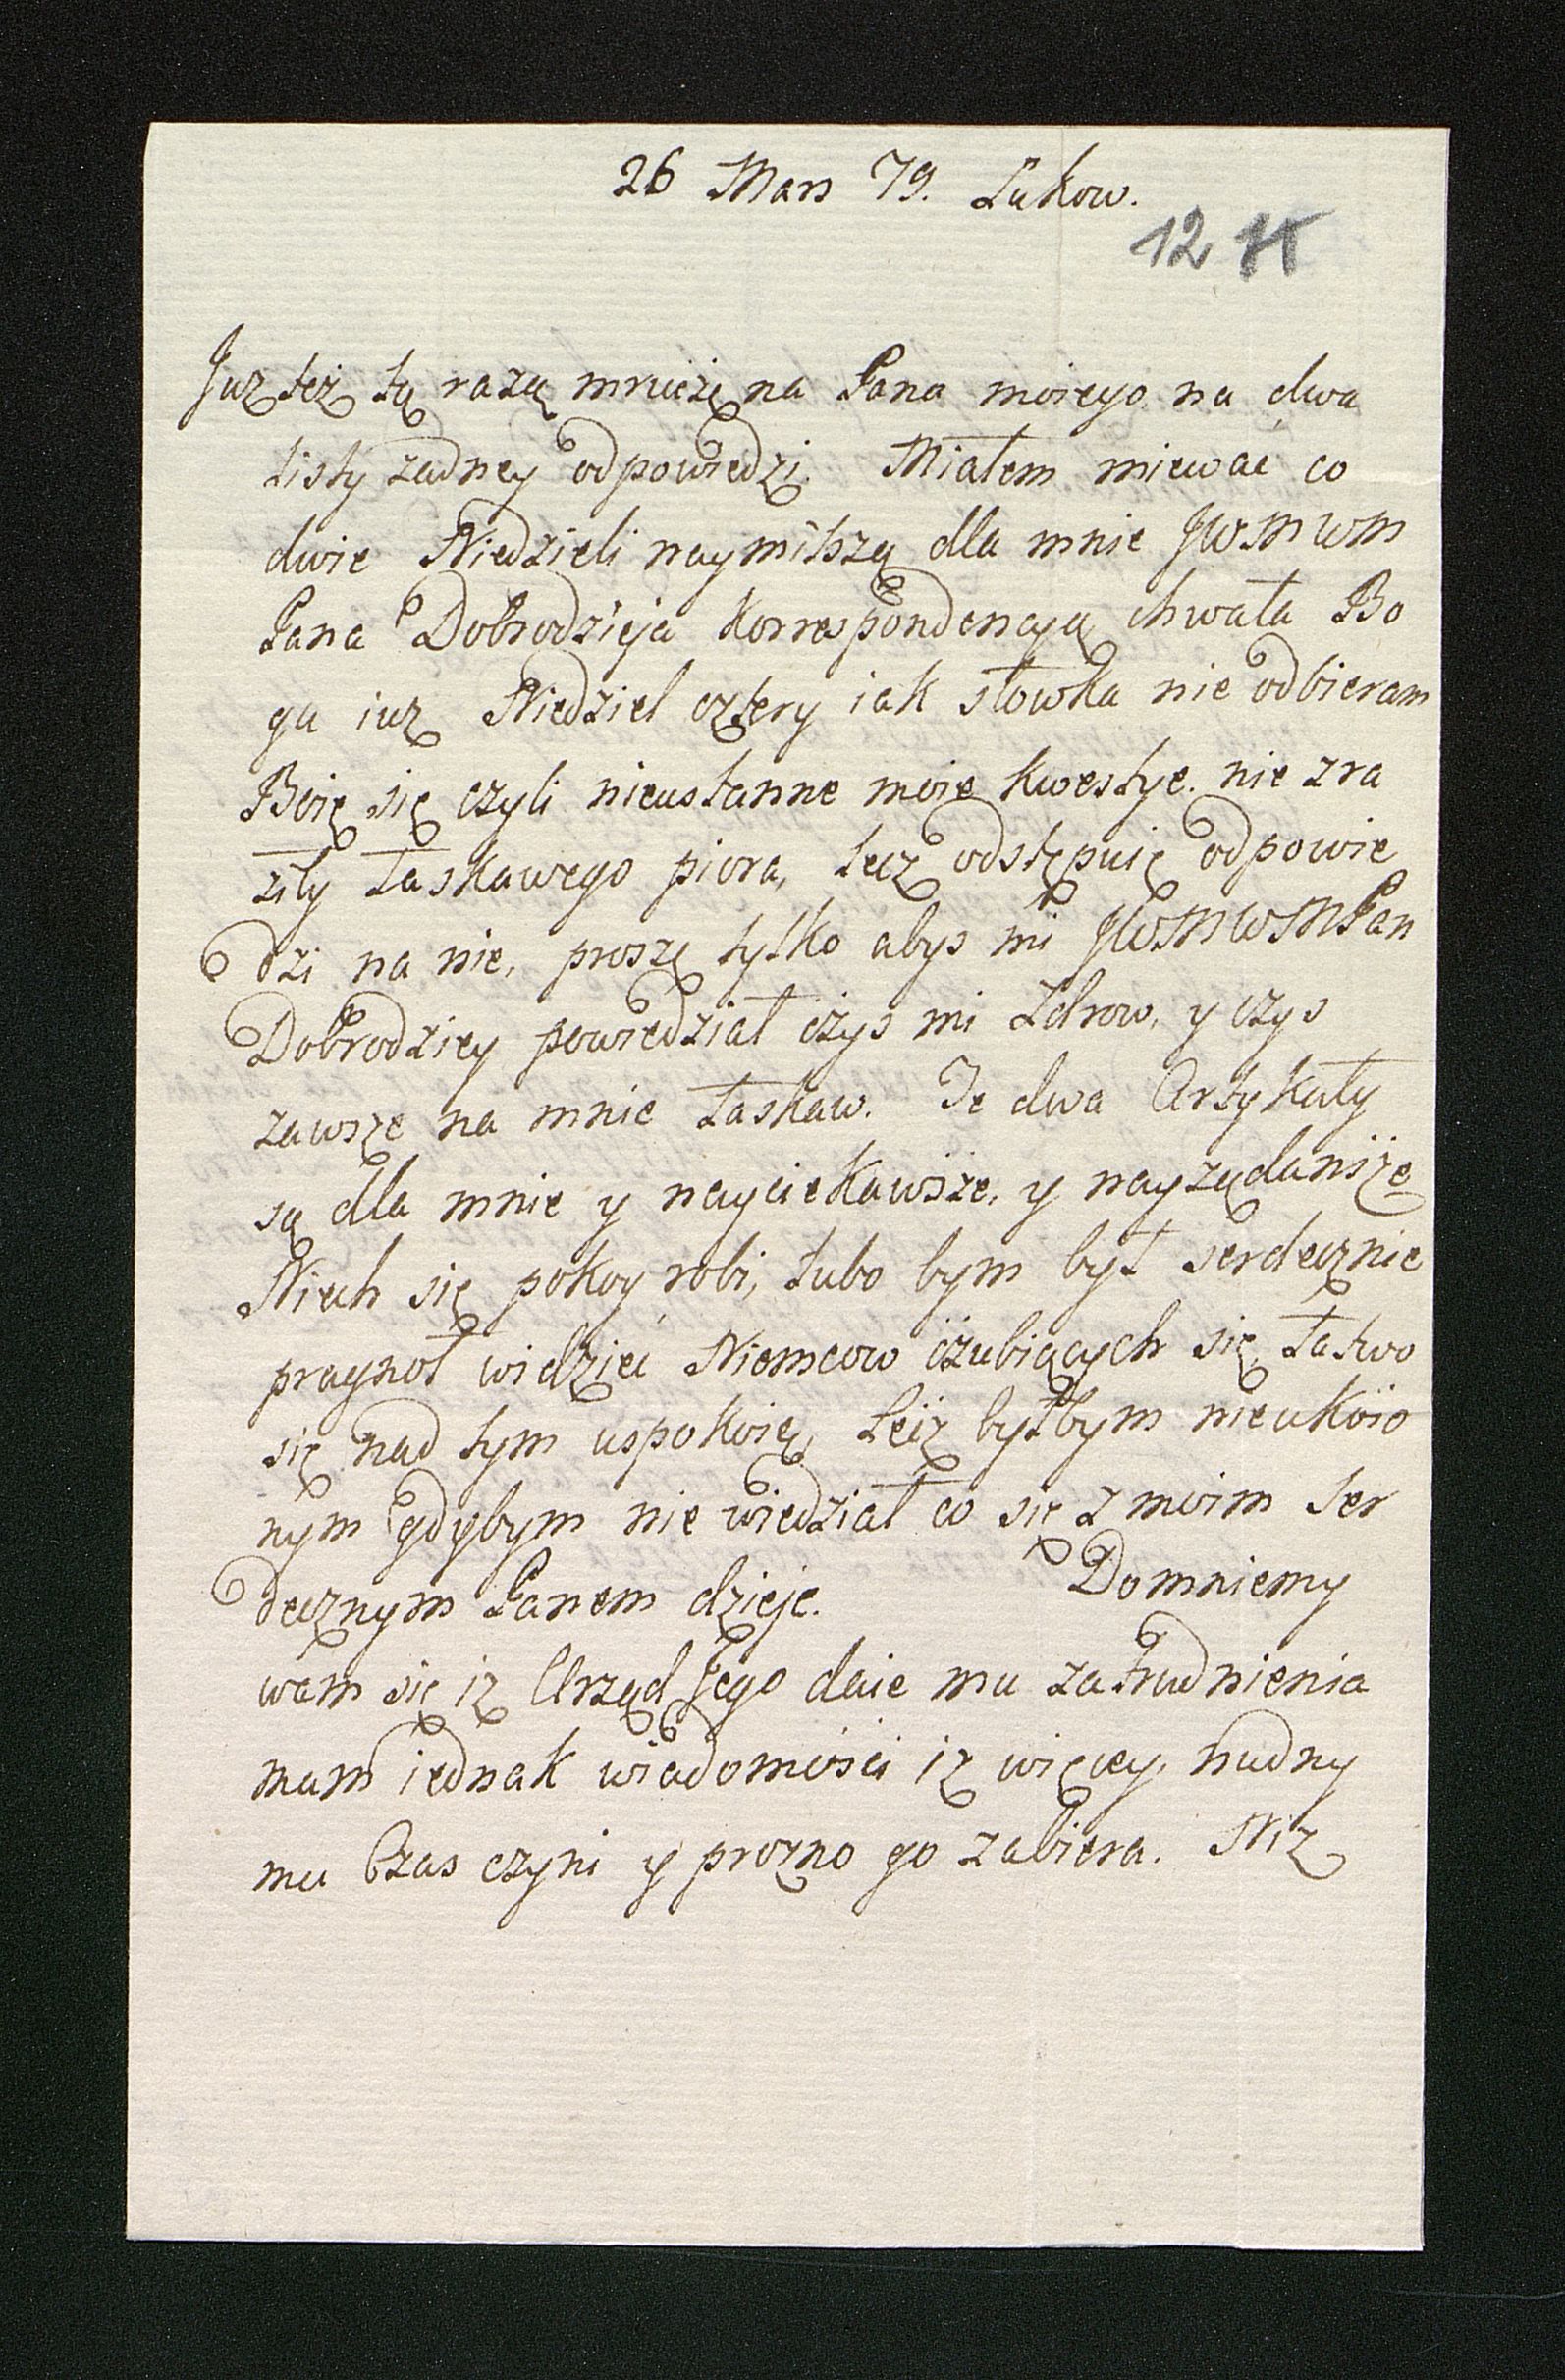 26 Mars 79. Łukow.
12
Juz tez tą razą mruczę na Pana moiego na dwa
listy zadney odpowiedzi. Miałem miewać co
dwie Niedzieli naymilszą dla mnie JWMWM
Pana Dobrodzieja korrespondencyą chwała Bo
gu iuz Niedziel cztery iak słowka nie odbieram
Boię się czyli nieustanne moie kwestye nie zra
ziły łaskawego piora, lecz odstępuię odpowie
dzi na nie, proszę tylko abys mi JWMWMPan
Dobrodziey powiedział czys mi zdrow, y czys
zawsze na mnie łaskaw. Te dwa Artykuły
są dla mnie y nayciekawsze, y nayządansze
Niech się pokoy robi, lubo bym był serdecznie
pragnoł widzieć Niemcow czubiących się, łatwo
się nad tym uspokoię, lecz byłbym nieukoio
nym gdybym nie wiedział co się z moim ser
decznym Panem dzieje. Domniemy
wam się iz Urząd Jego daie mu zatrudnienia
mam iednak wiadomości iz więcey nudny
mu Czas czyni y prozno go zabiera. Niz